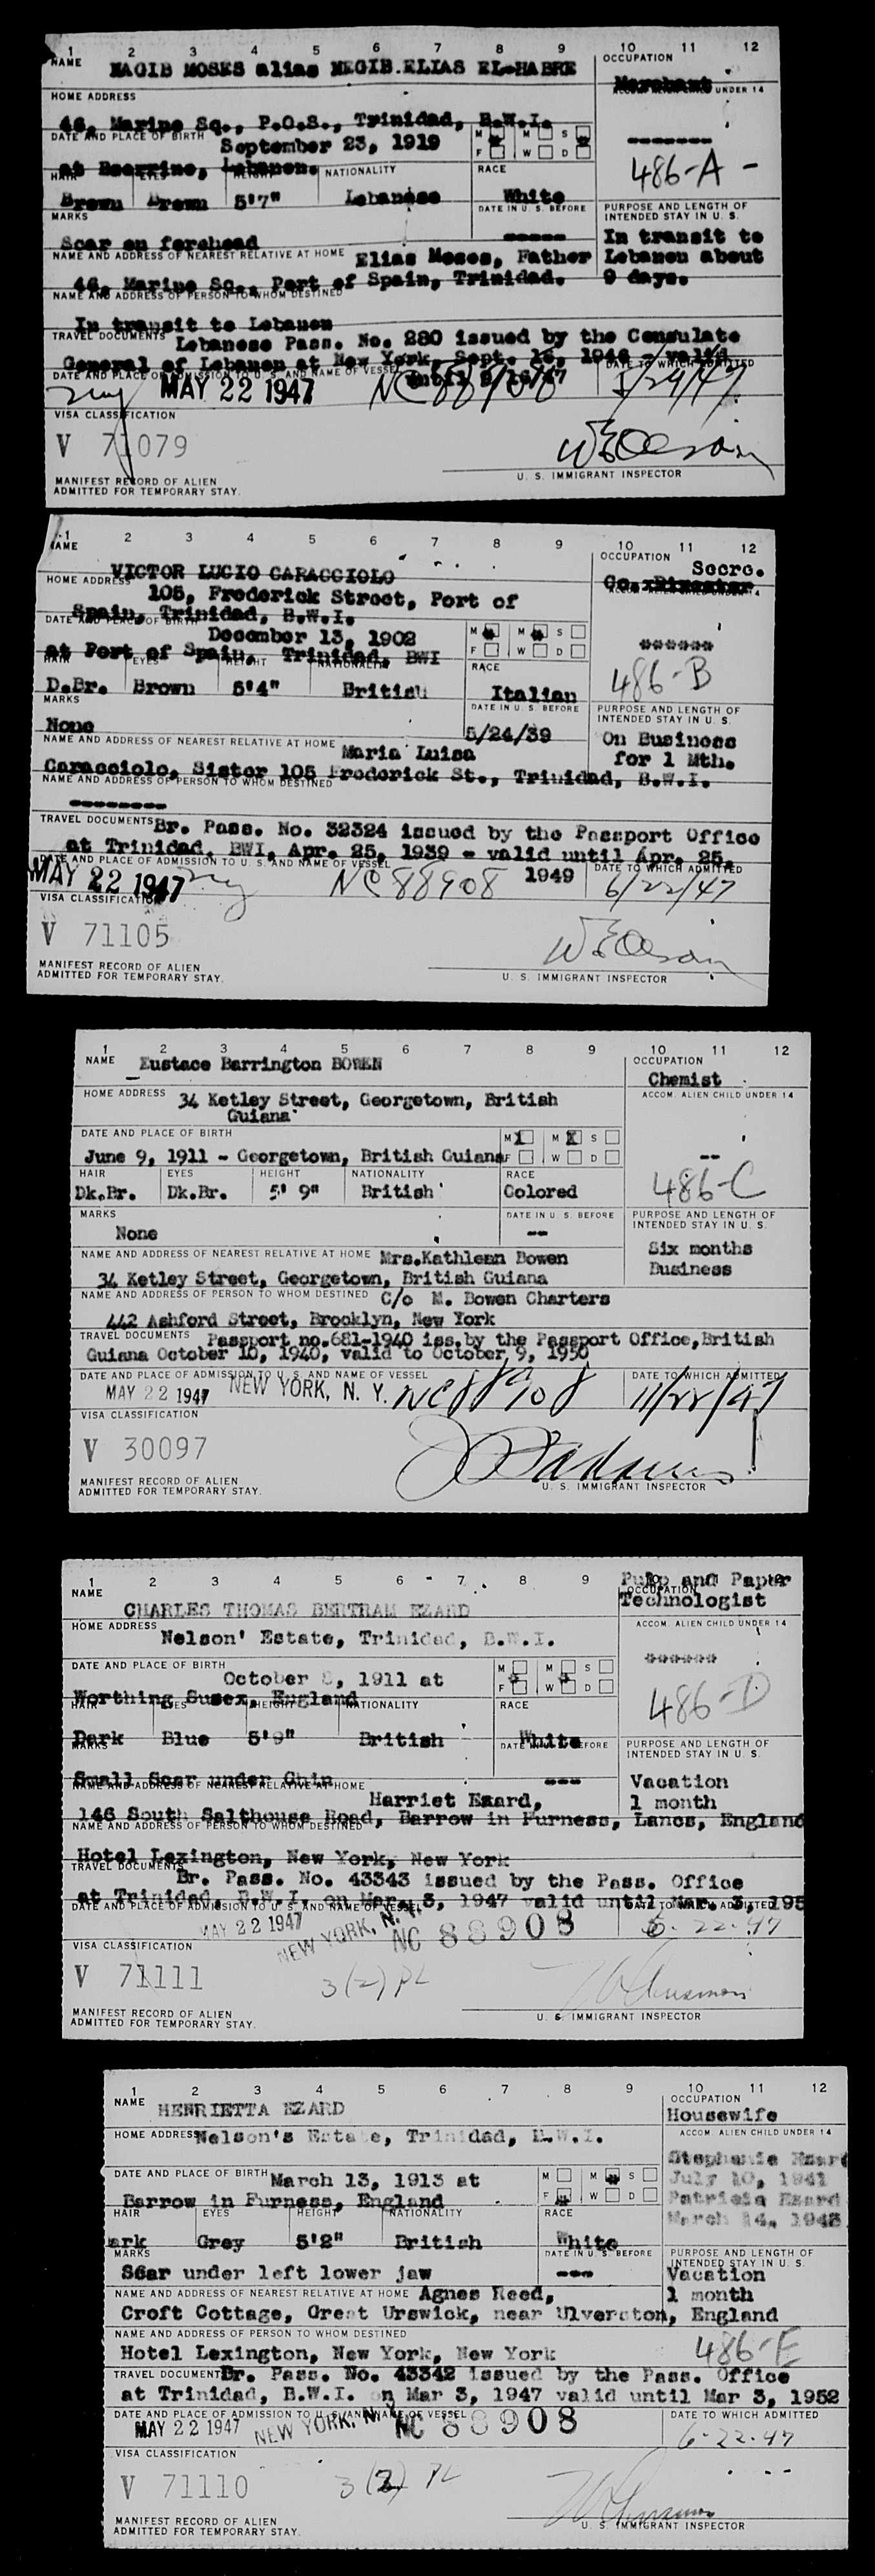 1 2 3 4 5 6 7 8 9 10 11 12
NAME NAGIB MOSES alias NEGIB.ELIAS EL-HABRE
OCCUPATION
Merchant
UNDER 14
HOME ADDRESS
46, Marine Sq., P.O.S., Trinidad, B.W.I.
DATE AND PLACE OF BIRTH September 23, 1919
M M S
F W D
at Lebanon.
HAIR EYES HEIGHT NATIONALITY RACE
486-A -
Brown Brown 5'7" Lebanese White
MARKS DATE IN U. S. BEFORE PURPOSE AND LENGTH OF INTENDED STAY IN U. S.
Scar on forehead ----- In transit to
NAME AND ADDRESS OF NEAREST RELATIVE AT HOME Elias Moses, Father Lebanon about
46, Marine Sq., Port of Spain, Trinidad. 9 days.
NAME AND ADDRESS OF PERSON TO WHOM DESTINED
In transit to Lebanon
TRAVEL DOCUMENTS Lebanese Pass. No. 280 issued by the Consulate
General of Lebanon at New York, Sept. 16, 1946 - valid
DATE AND PLACE OF ADMISSION TO U. S. AND NAME OF VESSEL until 9/16/47 DATE TO WHICH ADMITTED
MAY 22 1947 NC 88908 5/29/47
VISA CLASSIFICATION
V 71079
W E Olson
U. S. IMMIGRANT INSPECTOR
MANIFEST RECORD OF ALIEN
ADMITTED FOR TEMPORARY STAY.
1 2 3 4 5 6 7 8 9 10 11 12
NAME OCCUPATION Secre.
VICTOR LUCIO CARACCIOLO
Co. Director
HOME ADDRESS 105, Frederick Street, Port of
Spain, Trinidad, B.W.I.
DATE AND PLACE OF BIRTH December 13, 1902
M M S
F W D
at Port of Spain, Trinidad, BWI
HAIR EYES HEIGHT NATIONALITY RACE
486-B
D.Br. Brown 5'4" British Italian
MARKS DATE IN U. S. BEFORE PURPOSE AND LENGTH OF INTENDED STAY IN U. S.
None 5/24/39 On Business
NAME AND ADDRESS OF NEAREST RELATIVE AT HOME Maria Luisa for 1 Mth.
Caracciolo, Sister 105 Frederick St., Trinidad, B.W.I.
NAME AND ADDRESS OF PERSON TO WHOM DESTINED
--------
TRAVEL DOCUMENTS Br. Pass. No. 32324 issued by the Passport Office
at Trinidad, BWI, Apr. 25, 1939 - valid until Apr. 25,
DATE AND PLACE OF ADMISSION TO U. S. AND NAME OF VESSEL 1949 DATE TO WHICH ADMITTED
MAY 22 1947 NC 88908 6/22/47
VISA CLASSIFICATION
V 71105
W E Olson
U. S. IMMIGRANT INSPECTOR
MANIFEST RECORD OF ALIEN
ADMITTED FOR TEMPORARY STAY.
1 2 3 4 5 6 7 8 9 10 11 12
NAME Eustace Barrington BOWEN
OCCUPATION
Chemist
HOME ADDRESS 34 Ketley Street, Georgetown, British Guiana
ACCOM. ALIEN CHILD UNDER 14
DATE AND PLACE OF BIRTH
M X M X S
June 9, 1911 - Georgetown, British Guiana F W D --
HAIR EYES HEIGHT NATIONALITY RACE
486-C
Dk.Br. Dk.Br. 5' 9" British Colored
MARKS DATE IN U. S. BEFORE PURPOSE AND LENGTH OF INTENDED STAY IN U. S.
None -- Six months
NAME AND ADDRESS OF NEAREST RELATIVE AT HOME Mrs.Kathleen Bowen Business
34 Ketley Street, Georgetown, British Guiana
NAME AND ADDRESS OF PERSON TO WHOM DESTINED C/o M. Bowen Charters
442 Ashford Street, Brooklyn, New York
TRAVEL DOCUMENTS Passport no.681-1940 iss.by the Passport Office,British
Guiana October 10, 1940, valid to October 9, 1950
DATE AND PLACE OF ADMISSION TO U. S. AND NAME OF VESSEL DATE TO WHICH ADMITTED
MAY 22 1947 NEW YORK, N. Y. NC 88908 11/22/47
VISA CLASSIFICATION
V 30097
U. S. IMMIGRANT INSPECTOR
MANIFEST RECORD OF ALIEN
ADMITTED FOR TEMPORARY STAY.
1 2 3 4 5 6 7 8 9 Pulp and Paper
NAME OCCUPATION Technologist
CHARLES THOMAS BERTRAM EZARD
HOME ADDRESS Nelson' Estate, Trinidad, B.W.I.
ACCOM. ALIEN CHILD UNDER 14
DATE AND PLACE OF BIRTH October 8, 1911 at
M M S
F W D
Worthing Susex, England
HAIR EYES HEIGHT NATIONALITY RACE
486-D
Dark Blue 5'9" British White
MARKS DATE IN U. S. BEFORE PURPOSE AND LENGTH OF INTENDED STAY IN U. S.
Small Scar under Chin --- Vacation
NAME AND ADDRESS OF NEAREST RELATIVE AT HOME Harriet Ezard, 1 month
146 South Salthouse Road, Barrow in Furness, Lancs, England
NAME AND ADDRESS OF PERSON TO WHOM DESTINED
Hotel Lexington, New York, New York
TRAVEL DOCUMENTS Br. Pass. No. 43343 issued by the Pass. Office
at Trinidad, B.W.I. on Mar. 3, 1947 valid until Mar. 3, 195
DATE AND PLACE OF ADMISSION TO U. S. AND NAME OF VESSEL DATE TO WHICH ADMITTED
MAY 22 1947 NEW YORK, N. Y. NC 88908 6-22-47
VISA CLASSIFICATION
V 71111 3(2) PL
U. S. IMMIGRANT INSPECTOR
MANIFEST RECORD OF ALIEN
ADMITTED FOR TEMPORARY STAY.
1 2 3 4 5 6 7 8 9 10 11 12
NAME HENRIETTA EZARD
OCCUPATION
Housewife
HOME ADDRESS Nelson's Estate, Trinidad, B.W.I.
ACCOM. ALIEN CHILD UNDER 14
Stephanie Ezard
DATE AND PLACE OF BIRTH March 13, 1913 at
M M S
F W D
July 10, 1941
Barrow in Furness, England Patricia Ezard
HAIR EYES HEIGHT NATIONALITY RACE
March 14, 1943
ark Grey 5'2" British White
MARKS DATE IN U. S. BEFORE PURPOSE AND LENGTH OF INTENDED STAY IN U. S.
Scar under left lower jaw --- Vacation
NAME AND ADDRESS OF NEAREST RELATIVE AT HOME Agnes Reed, 1 month
Croft Cottage, Great Urswick, near Ulverston, England
NAME AND ADDRESS OF PERSON TO WHOM DESTINED
486-E
Hotel Lexington, New York, New York
TRAVEL DOCUMENTS Br. Pass. No. 43342 issued by the Pass. Office
at Trinidad, B.W.I. on Mar 3, 1947 valid until Mar 3, 1952
DATE AND PLACE OF ADMISSION TO U. S. AND NAME OF VESSEL DATE TO WHICH ADMITTED
MAY 22 1947 NEW YORK, N. Y. NC 88908 6-22-47
VISA CLASSIFICATION
V 71110 3(2) PL
U. S. IMMIGRANT INSPECTOR
MANIFEST RECORD OF ALIEN
ADMITTED FOR TEMPORARY STAY.